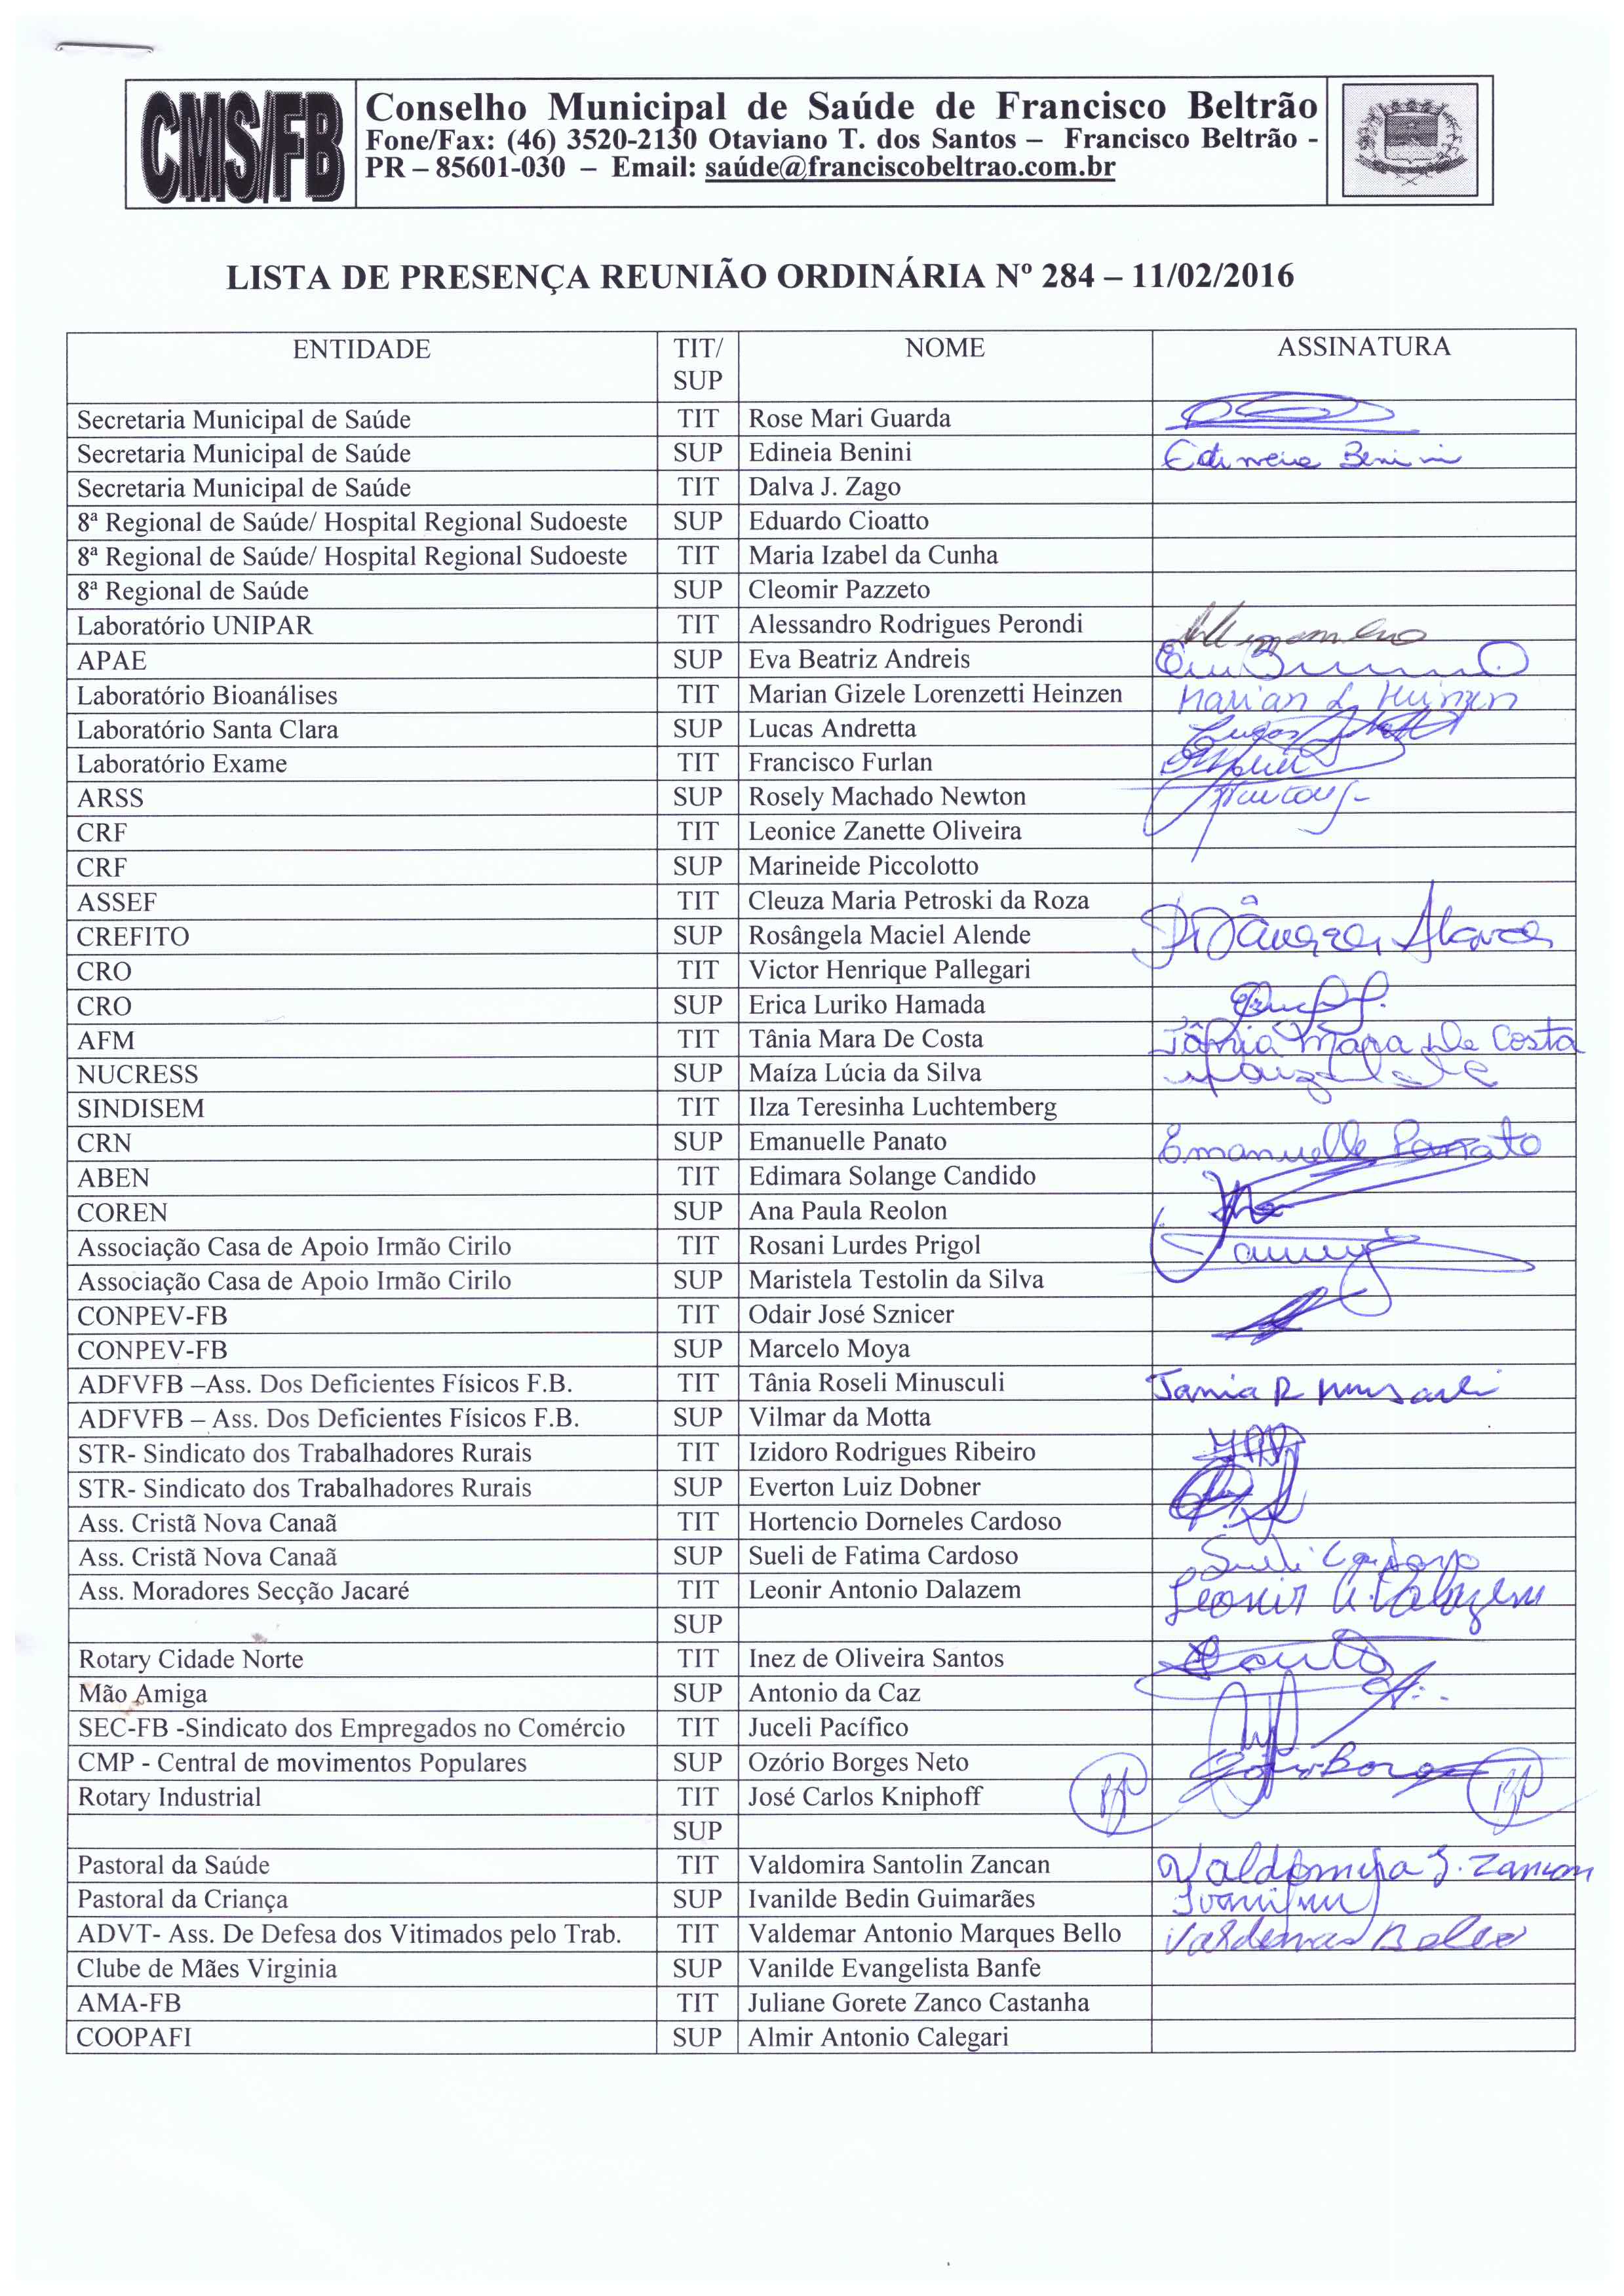 CMS/FB
Conselho Municipal de Saúde de Francisco Beltrão
Fone/Fax: (46) 3520-2130 Otaviano T. dos Santos – Francisco Beltrão -
PR – 85601-030 – Email: saúde@franciscobeltrao.com.br
LISTA DE PRESENÇA REUNIÃO ORDINÁRIA Nº 284 – 11/02/2016
ENTIDADE TIT/ SUP NOME ASSINATURA
Secretaria Municipal de Saúde TIT Rose Mari Guarda
Secretaria Municipal de Saúde SUP Edineia Benini Edineia Benini
Secretaria Municipal de Saúde TIT Dalva J. Zago
8ª Regional de Saúde/ Hospital Regional Sudoeste SUP Eduardo Cioatto
8ª Regional de Saúde/ Hospital Regional Sudoeste TIT Maria Izabel da Cunha
8ª Regional de Saúde SUP Cleomir Pazzeto
Laboratório UNIPAR TIT Alessandro Rodrigues Perondi
APAE SUP Eva Beatriz Andreis
Laboratório Bioanálises TIT Marian Gizele Lorenzetti Heinzen Marian L Heinzen
Laboratório Santa Clara SUP Lucas Andretta
Laboratório Exame TIT Francisco Furlan
ARSS SUP Rosely Machado Newton
CRF TIT Leonice Zanette Oliveira
CRF SUP Marineide Piccolotto
ASSEF TIT Cleuza Maria Petroski da Roza
CREFITO SUP Rosângela Maciel Alende
CRO TIT Victor Henrique Pallegari
CRO SUP Erica Luriko Hamada
AFM TIT Tânia Mara De Costa Tânia Mara De Costa
NUCRESS SUP Maíza Lúcia da Silva
SINDISEM TIT Ilza Teresinha Luchtemberg
CRN SUP Emanuelle Panato Emanuelle Panato
ABEN TIT Edimara Solange Candido
COREN SUP Ana Paula Reolon
Associação Casa de Apoio Irmão Cirilo TIT Rosani Lurdes Prigol
Associação Casa de Apoio Irmão Cirilo SUP Maristela Testolin da Silva
CONPEV-FB TIT Odair José Sznicer
CONPEV-FB SUP Marcelo Moya
ADFVFB –Ass. Dos Deficientes Físicos F.B. TIT Tânia Roseli Minusculi Tania R Minusculi
ADFVFB – Ass. Dos Deficientes Físicos F.B. SUP Vilmar da Motta
STR- Sindicato dos Trabalhadores Rurais TIT Izidoro Rodrigues Ribeiro
STR- Sindicato dos Trabalhadores Rurais SUP Everton Luiz Dobner
Ass. Cristã Nova Canaã TIT Hortencio Dorneles Cardoso
Ass. Cristã Nova Canaã SUP Sueli de Fatima Cardoso Sueli Cardoso
Ass. Moradores Secção Jacaré TIT Leonir Antonio Dalazem Leonir A. Dalazem
SUP
Rotary Cidade Norte TIT Inez de Oliveira Santos
Mão Amiga SUP Antonio da Caz
SEC-FB -Sindicato dos Empregados no Comércio TIT Juceli Pacífico
CMP - Central de movimentos Populares SUP Ozório Borges Neto
Rotary Industrial TIT José Carlos Kniphoff
SUP
Pastoral da Saúde TIT Valdomira Santolin Zancan Valdomira S. Zancan
Pastoral da Criança SUP Ivanilde Bedin Guimarães
ADVT- Ass. De Defesa dos Vitimados pelo Trab. TIT Valdemar Antonio Marques Bello Valdemar Bello
Clube de Mães Virginia SUP Vanilde Evangelista Banfe
AMA-FB TIT Juliane Gorete Zanco Castanha
COOPAFI SUP Almir Antonio Calegari